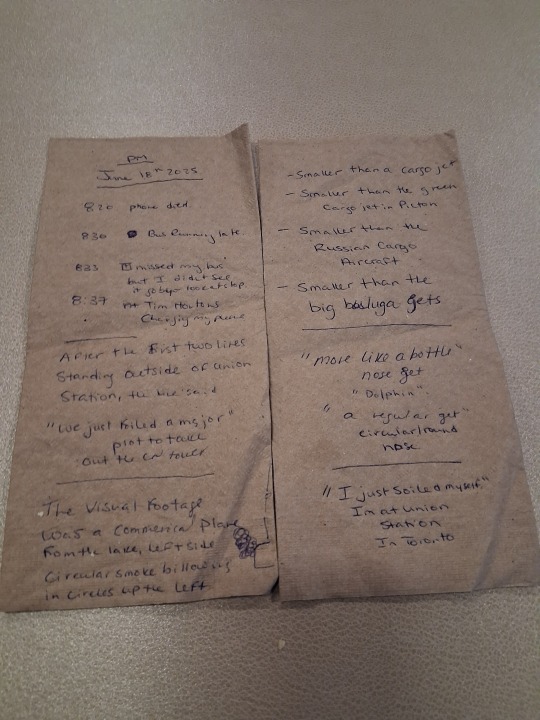 PM
June 18th 2025
820 phone died.
830 Bus Running late.
835 I missed my bus
but I didn't see
it go by to catch.
8:37 At Tim Hortons
Charging my phone
After the first two lines
Standing outside of union
Station, the said
"We just foiled a major"
plot to take
out the CN tower
The Visual Footage
was a Commercial Plane
from the lake, Left side
Circular smoke billowing
in circles up the left
- Smaller than a cargo jet
- Smaller than the green
Cargo jet in Picton
- Smaller than the
Russian Cargo
Aircraft
- Smaller than the
big baluga gets
"more like a bottle"
nose get
"Dolphin".
"a regular get"
circular/round
nose
"I just Soiled myself."
Im at Union
Station
In Toronto